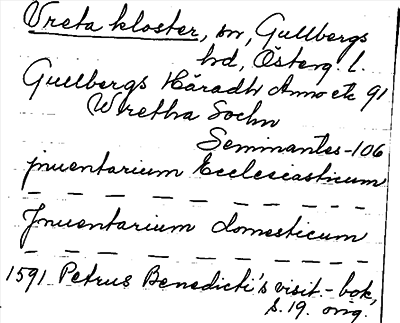 Vreta kloster, sn, Gullbergs
hd, Österg. l.
Gullbergs Häradh Anno etc 91
Wretha Sochn
Seminantes - 106
jnuentarium Ecclesiasticum
— — — — — — — —
Jnuentarium domesticum
— — — — — — — — —
1591 Petrus Benedicti's visit-bok,
s. 19. orig.